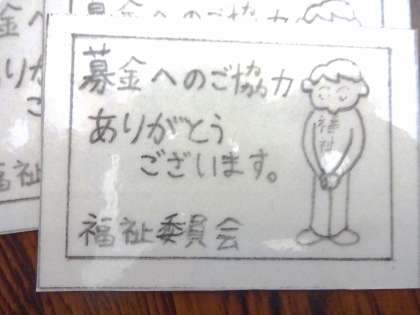 募金へのご協力
ありがとう
ございます。
福祉委員会
福祉
金へのご協力
りが
ご
福祉